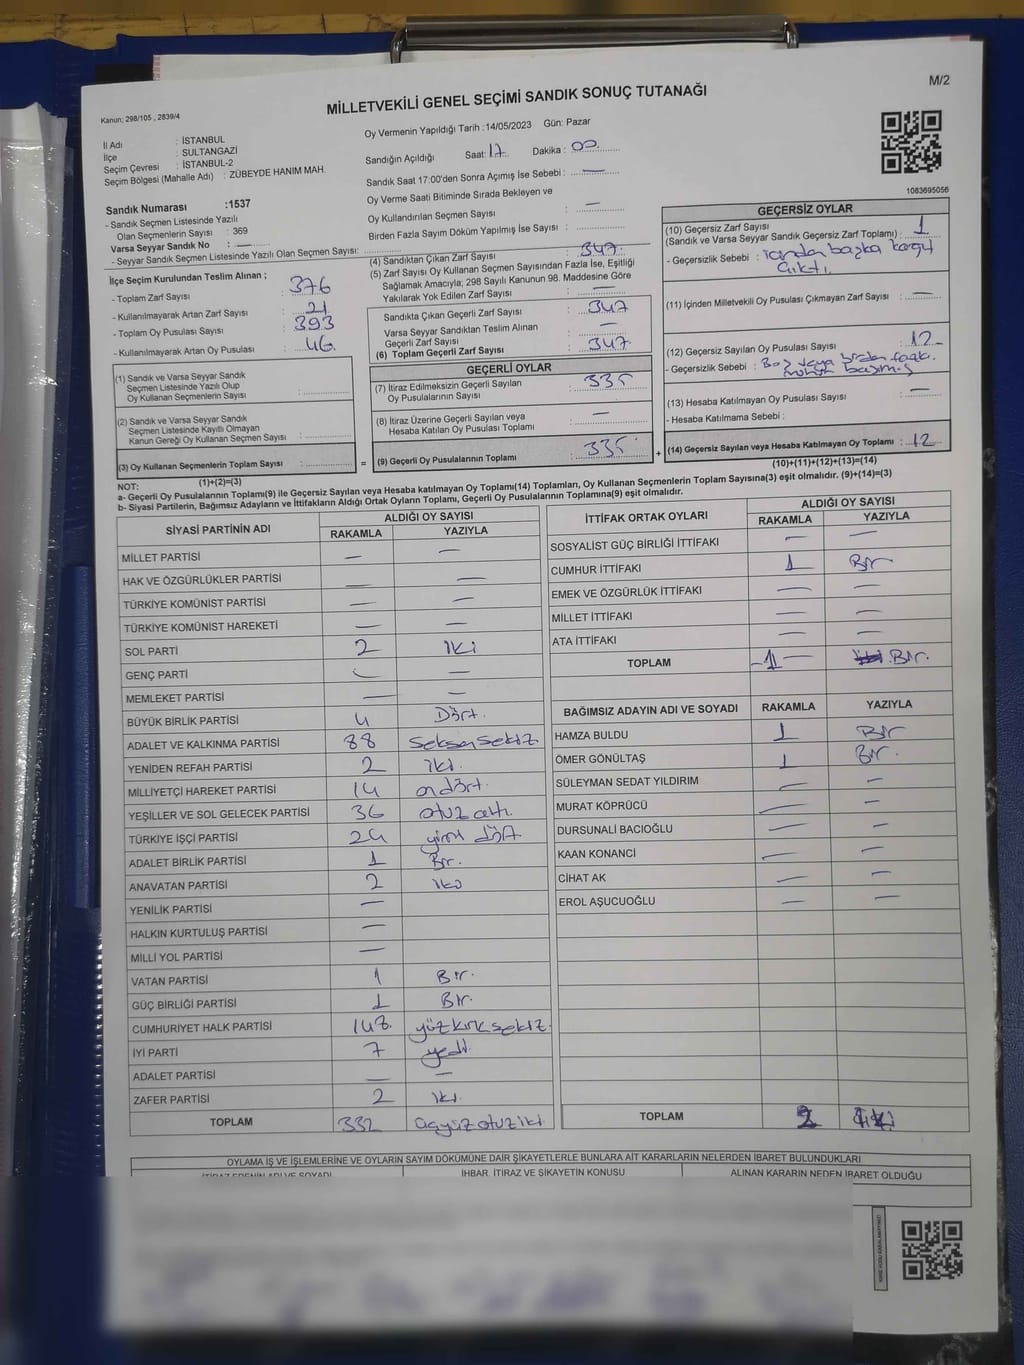 M/2
MİLLETVEKİLİ GENEL SEÇİMİ SANDIK SONUÇ TUTANAĞI
Kanun; 298/105 , 2839/4
İl Adı : İSTANBUL
İlçe : SULTANGAZİ
Seçim Çevresi : İSTANBUL-2
Seçim Bölgesi (Mahalle Adı) : ZÜBEYDE HANIM MAH.
Oy Vermenin Yapıldığı Tarih :14/05/2023 Gün: Pazar
Sandığın Açıldığı Saat: 17 Dakika : 00
Sandık Saat 17:00'den Sonra Açımış İse Sebebi : —
Oy Verme Saati Bitiminde Sırada Bekleyen ve
Oy Kullandırılan Seçmen Sayısı : —
Birden Fazla Sayım Döküm Yapılmış İse Sayısı : —
1083695056
Sandık Numarası :1537
- Sandık Seçmen Listesinde Yazılı
Olan Seçmenlerin Sayısı : 369
Varsa Seyyar Sandık No : —
- Seyyar Sandık Seçmen Listesinde Yazılı Olan Seçmen Sayısı:
İlçe Seçim Kurulundan Teslim Alınan ;
- Toplam Zarf Sayısı : 376
- Kullanılmayarak Artan Zarf Sayısı : 21
- Toplam Oy Pusulası Sayısı : 393
- Kullanılmayarak Artan Oy Pusulası : 46
(1) Sandık ve Varsa Seyyar Sandık
Seçmen Listesinde Yazılı Olup
Oy Kullanan Seçmenlerin Sayısı :
(2) Sandık ve Varsa Seyyar Sandık
Seçmen Listesinde Kayıtlı Olmayan
Kanun Gereği Oy Kullanan Seçmen Sayısı :
(3) Oy Kullanan Seçmenlerin Toplam Sayısı :
(1)+(2)=(3)
(4) Sandıktan Çıkan Zarf Sayısı : 347
(5) Zarf Sayısı Oy Kullanan Seçmen Sayısından Fazla İse, Eşitliği
Sağlamak Amacıyla; 298 Sayılı Kanunun 98. Maddesine Göre
Yakılarak Yok Edilen Zarf Sayısı : —
Sandıkta Çıkan Geçerli Zarf Sayısı : 347
Varsa Seyyar Sandıktan Teslim Alınan
Geçerli Zarf Sayısı : —
(6) Toplam Geçerli Zarf Sayısı : 347
GEÇERLİ OYLAR
(7) İtiraz Edilmeksizin Geçerli Sayılan
Oy Pusulalarının Sayısı : 335
(8) İtiraz Üzerine Geçerli Sayılan veya
Hesaba Katılan Oy Pusulası Toplamı : —
= (9) Geçerli Oy Pusulalarının Toplamı : 335 +
GEÇERSİZ OYLAR
(10) Geçersiz Zarf Sayısı
(Sandık ve Varsa Seyyar Sandık Geçersiz Zarf Toplamı) : 1
- Geçersizlik Sebebi : içinden başka kağıt
çıktı
(11) İçinden Milletvekili Oy Pusulası Çıkmayan Zarf Sayısı : —
(12) Geçersiz Sayılan Oy Pusulası Sayısı : 12
- Geçersizlik Sebebi : Boş veya birden fazla
mühür basımış
(13) Hesaba Katılmayan Oy Pusulası Sayısı : —
- Hesaba Katılmama Sebebi :
(14) Geçersiz Sayılan veya Hesaba Katılmayan Oy Toplamı : 12
(10)+(11)+(12)+(13)=(14)
NOT:
a- Geçerli Oy Pusulalarının Toplamı(9) ile Geçersiz Sayılan veya Hesaba katılmayan Oy Toplamı(14) Toplamları, Oy Kullanan Seçmenlerin Toplam Sayısına(3) eşit olmalıdır. (9)+(14)=(3)
b- Siyasi Partilerin, Bağımsız Adayların ve İttifakların Aldığı Ortak Oyların Toplamı, Geçerli Oy Pusulalarının Toplamına(9) eşit olmalıdır.
SİYASİ PARTİNİN ADI ALDIĞI OY SAYISI
RAKAMLA YAZIYLA
MİLLET PARTİSİ — —
HAK VE ÖZGÜRLÜKLER PARTİSİ — —
TÜRKİYE KOMÜNİST PARTİSİ — —
TÜRKİYE KOMÜNİST HAREKETİ — —
SOL PARTİ 2 iki
GENÇ PARTİ — —
MEMLEKET PARTİSİ — —
BÜYÜK BİRLİK PARTİSİ 4 Dört.
ADALET VE KALKINMA PARTİSİ 88 seksensekiz
YENİDEN REFAH PARTİSİ 2 iki.
MİLLİYETÇİ HAREKET PARTİSİ 14 ondört.
YEŞİLLER VE SOL GELECEK PARTİSİ 36 otuz altı
TÜRKİYE İŞÇİ PARTİSİ 24 yirmi dört
ADALET BİRLİK PARTİSİ 1 Bir.
ANAVATAN PARTİSİ 2 iki
YENİLİK PARTİSİ —
HALKIN KURTULUŞ PARTİSİ —
MİLLİ YOL PARTİSİ —
VATAN PARTİSİ 1 Bir.
GÜÇ BİRLİĞİ PARTİSİ 1 Bir.
CUMHURİYET HALK PARTİSİ 148. yüzkırksekiz.
İYİ PARTİ 7 yedi.
ADALET PARTİSİ — —
ZAFER PARTİSİ 2 iki.
TOPLAM 332 üçyüzotuziki
İTTİFAK ORTAK OYLARI ALDIĞI OY SAYISI
RAKAMLA YAZIYLA
SOSYALİST GÜÇ BİRLİĞİ İTTİFAKI — —
CUMHUR İTTİFAKI 1 Bir
EMEK VE ÖZGÜRLÜK İTTİFAKI — —
MİLLET İTTİFAKI — —
ATA İTTİFAKI — —
TOPLAM —1— Bir.
BAĞIMSIZ ADAYIN ADI VE SOYADI RAKAMLA YAZIYLA
HAMZA BULDU 1 Bir
ÖMER GÖNÜLTAŞ 1 Bir.
SÜLEYMAN SEDAT YILDIRIM — —
MURAT KÖPRÜCÜ — —
DURSUNALİ BACIOĞLU — —
KAAN KONANCİ — —
CİHAT AK — —
EROL AŞUCUOĞLU — —
TOPLAM 2 iki
OYLAMA İŞ VE İŞLEMLERİNE VE OYLARIN SAYIM DÖKÜMÜNE DAİR ŞİKAYETLERLE BUNLARA AİT KARARLARIN NELERDEN İBARET BULUNDUKLARI
İTİRAZ EDENİN ADI VE SOYADI İHBAR, İTİRAZ VE ŞİKAYETİN KONUSU ALINAN KARARIN NEDEN İBARET OLDUĞU